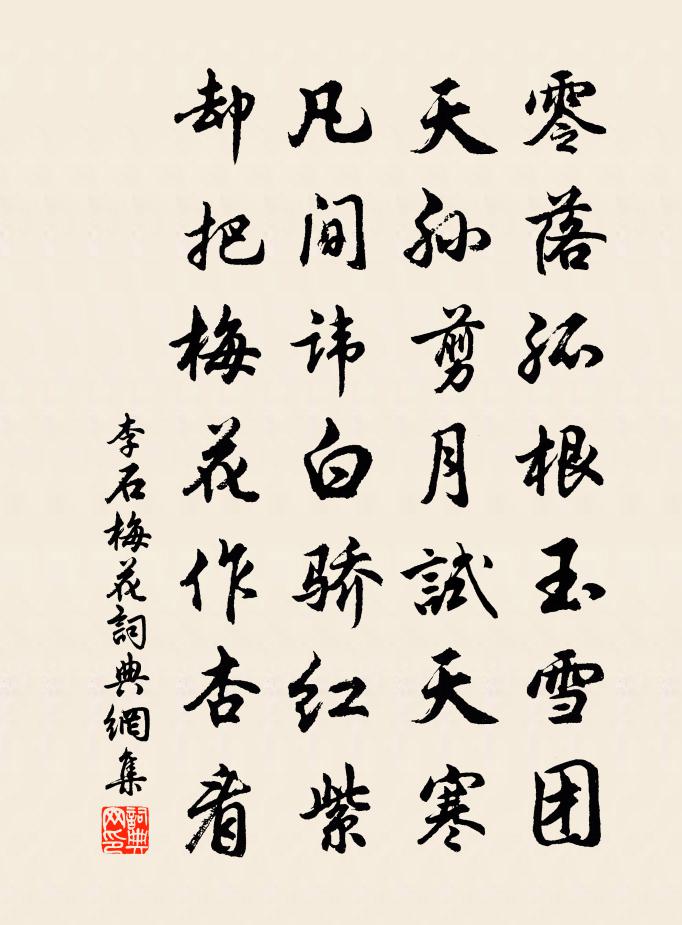 零落孤根玉雪团
天孙剪月試天寒
凡间讳白骄红紫
却把梅花作杏看
李石梅花詞典網集
詞典网印